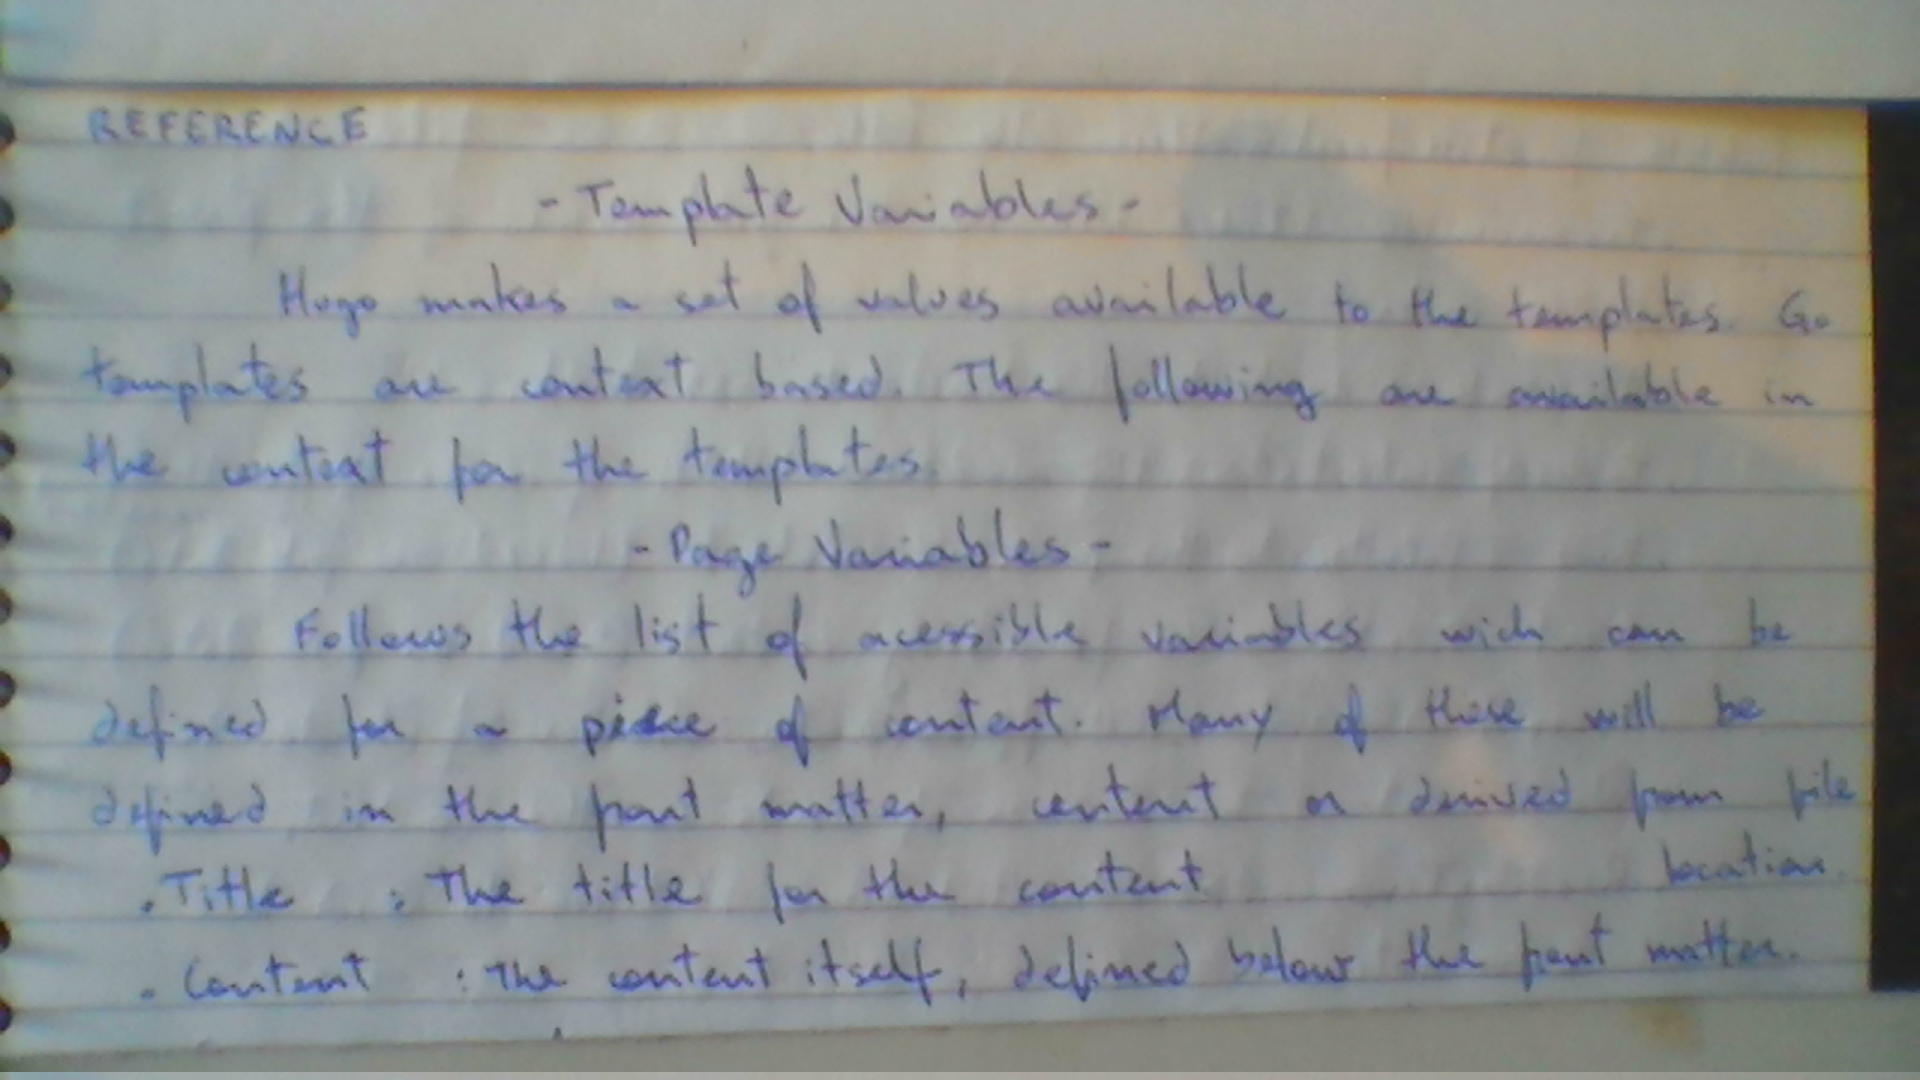 REFERENCE
- Template Variables -
Hugo makes a set of values available to the templates. Go
templates are context based. The following are available in
the context for the templates.
- Page Variables -
Follows the list of acessible variables wich can be
defined for a piece of content. Many of these will be
defined in the front matter, content or derived from file
location.
.Title : The title for the content
.Content : The content itself, defined below the front matter.